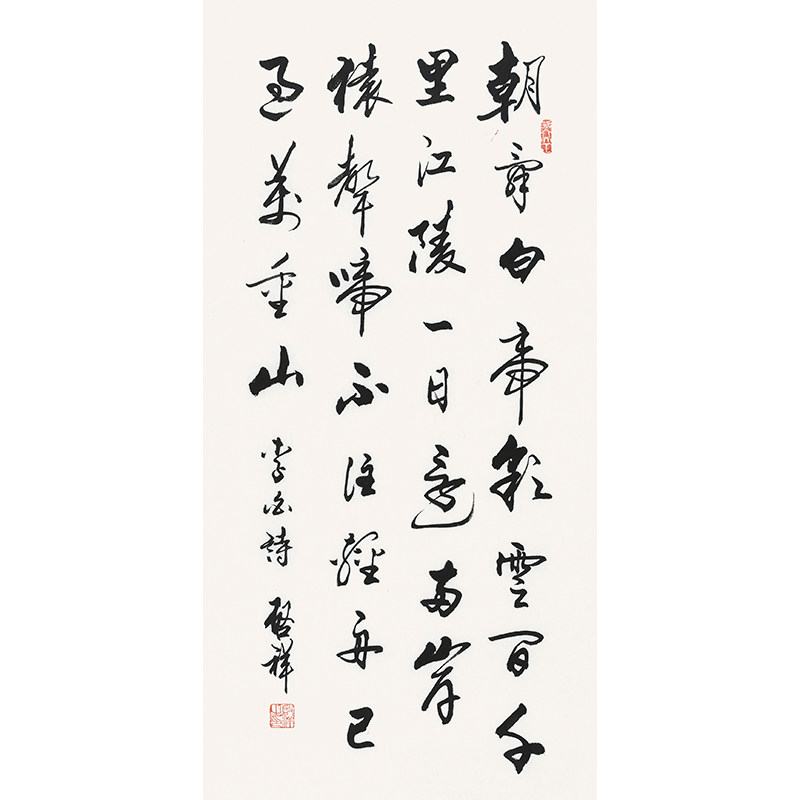 朝辭白帝彩雲間千
里江陵一日還兩岸
猿聲啼不住輕舟已
過萬重山 李白詩 啓祥